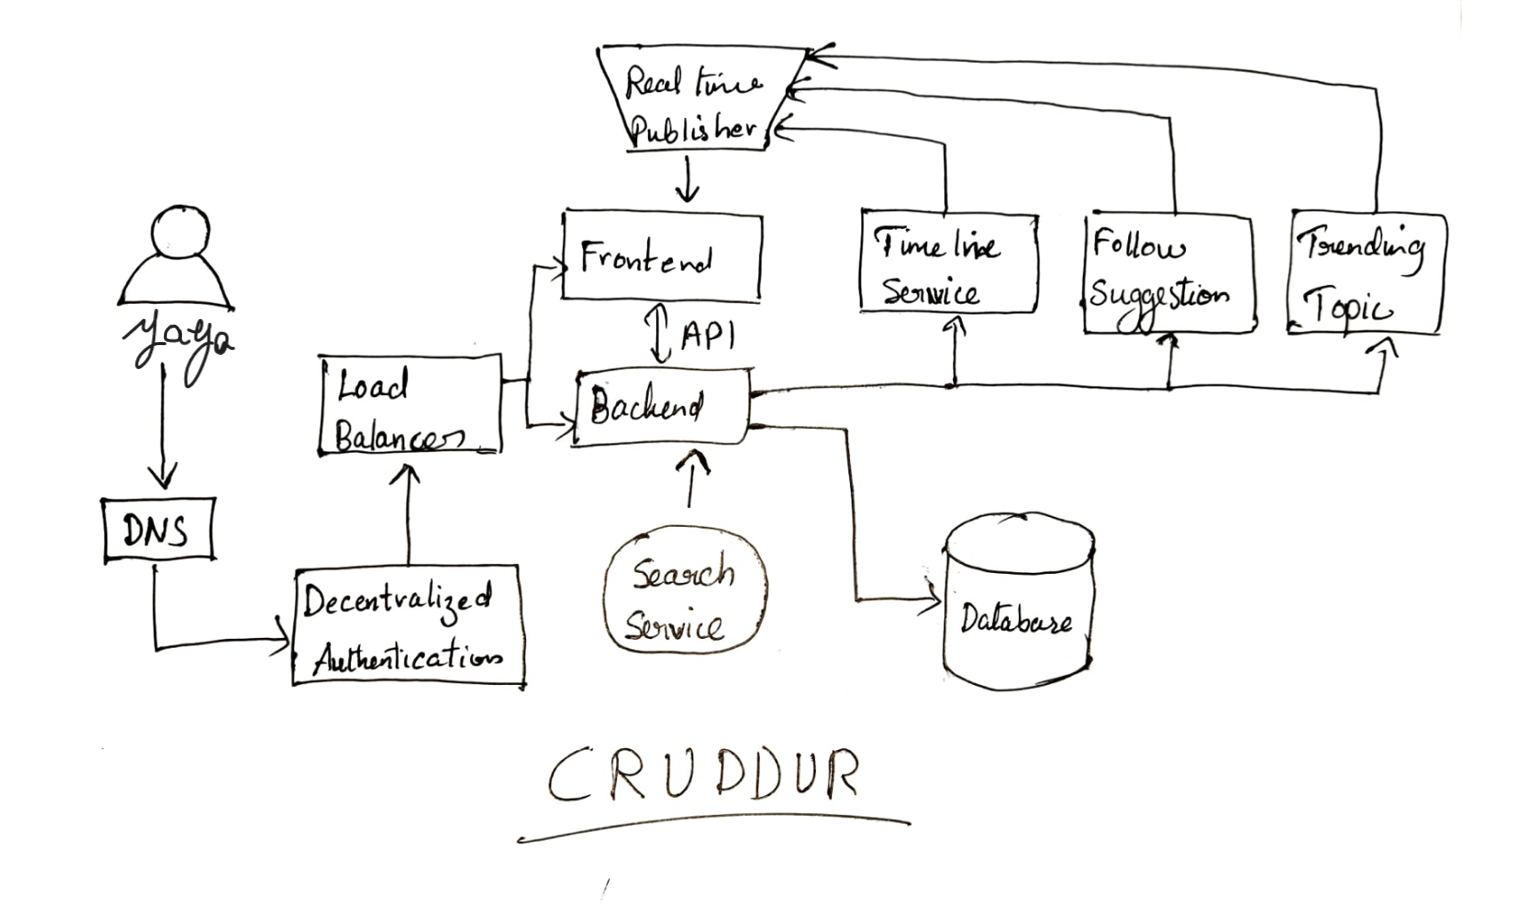 Real time
Publisher
Frontend
Timeline
Service
Follow
Suggestion
Trending
Topic
Yaya
API
Load
Balancer
Backend
DNS
Decentralized
Authentication
Search
Service
Database
CRUDDUR